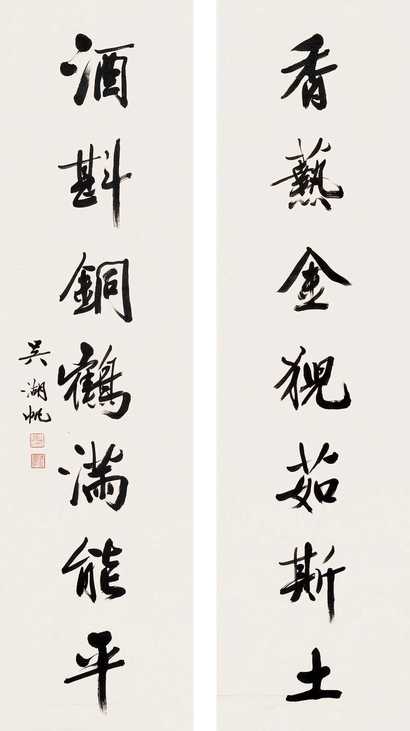 香爇金猊茹斯土
酒斟銅鶴滿能平
吳湖帆